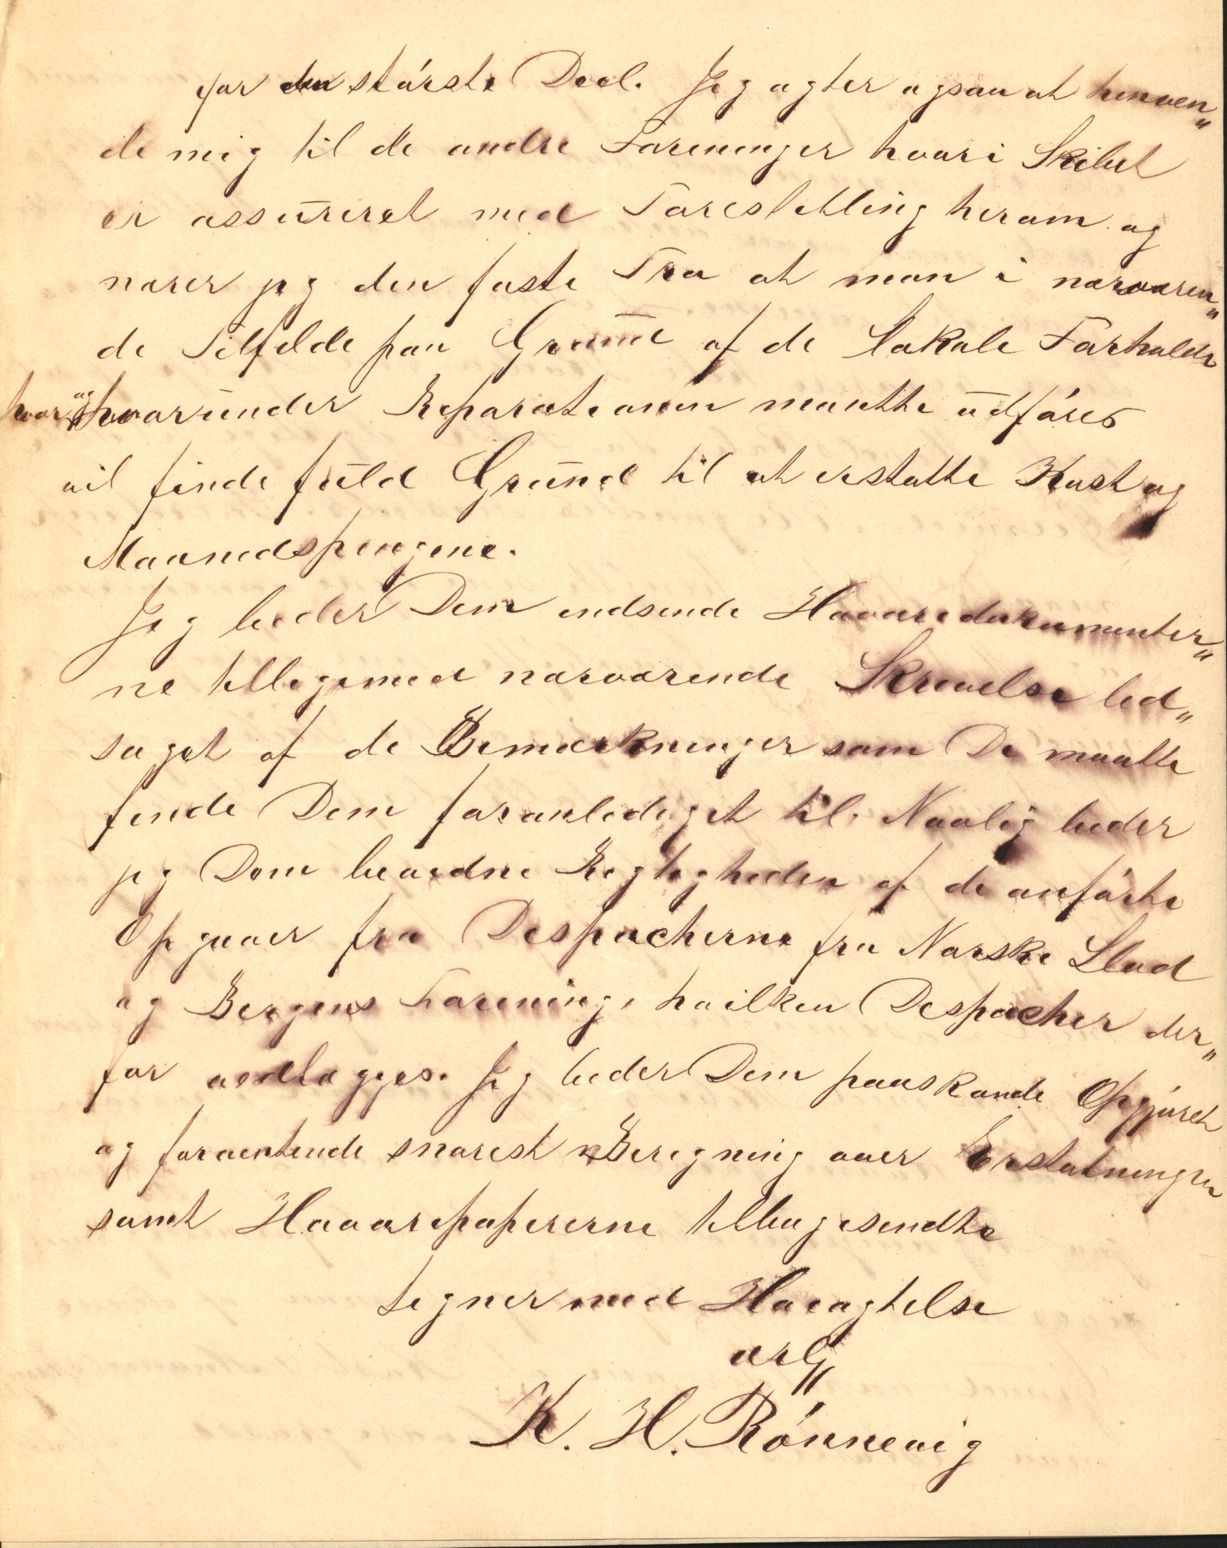 for den störste Deel. Jeg agter ogsaa at henven„
de mig til de andre Foreninger hvori Skibet
er assureret med Forestilling herom og
nærer jeg den faste Tro at man i nærværen„
de Tilfelde paa Grund af de lokale Forholde
hvor og hvorunder Reparationen maatte udföres
vil finde fuld Grund til at erstatte Kost og
Maanedspengene.
Jeg beder Dem indsende Havaridokumenter„
ne tilligemed nærværende Skrivelse led„
saget af de Bemærkninger som De maatte
finde Dem foranlediget til. Navlig beder
jeg Dem bevidne Rigtigheden af de anförte
Opgaver fra Despacherne fra Norske Llod
og Bergens Forening, hvilken Despacher der„
for vedlægges. Jeg beder Dem paaskynde Opgjöret
og forventende snarest Beregning over Erstatningen
samt Havaripapirerne tilbagesendte
tegner med Höiagtelse
ærb„
K. H. Rönnevig